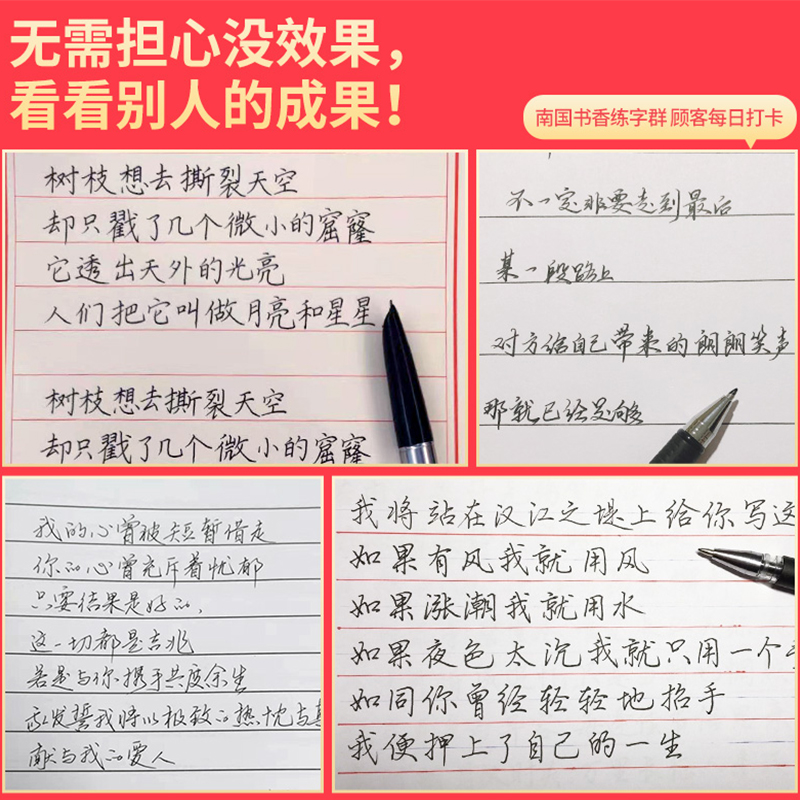 无需担心没效果，
看看别人的成果！
南国书香练字群 顾客每日打卡
树枝想去撕裂天空
却只戳了几个微小的窟窿
它透出天外的光亮
人们把它叫做月亮和星星
树枝想去撕裂天空
却只戳了几个微小的窟窿
不一定非要走到最后
某一段路上
对方给自己带来的朗朗笑声
那就已经足够
我的心曾被短暂借走
你的心曾充斥着忧郁
只要结果是好的，
这一切都是吉兆
若是与你携手共度余生
我发誓我将以极致的热忱与
献与我的爱人
我将站在汉江之堤上给你写这
如果有风我就用风
如果涨潮我就用水
如果夜色太沉我就只用一个
如同你曾经轻轻地招手
我便押上了自己的一生